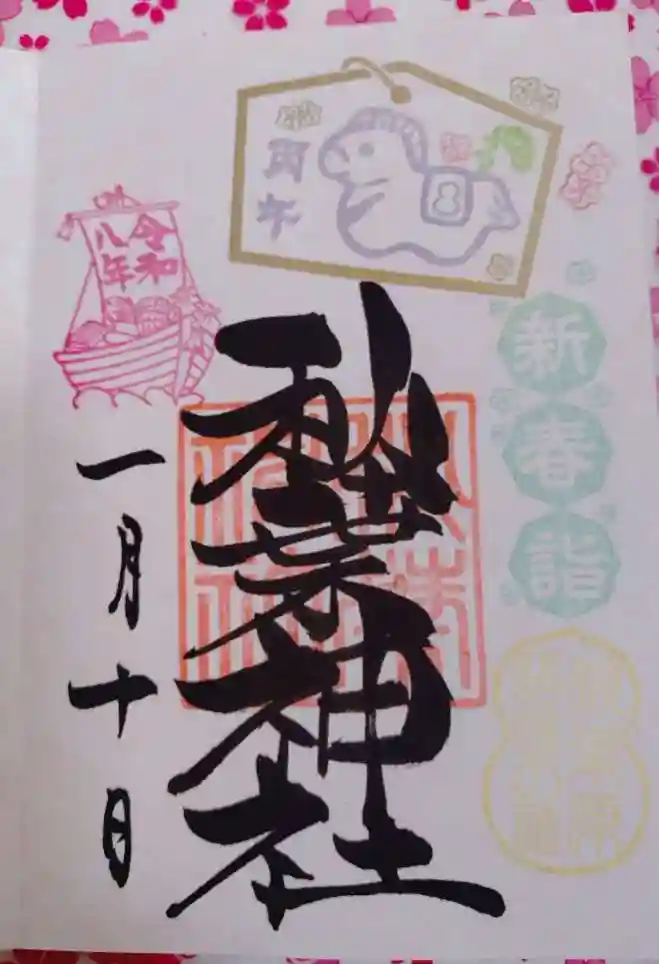 新春詣
丙午
秋葉神社
令和
八年
一月十日